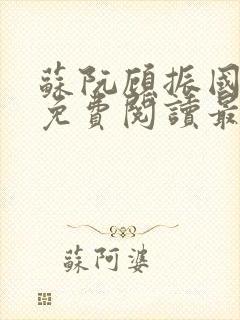 蘇阮顧振國
免費閱讀最
蘇阿婆